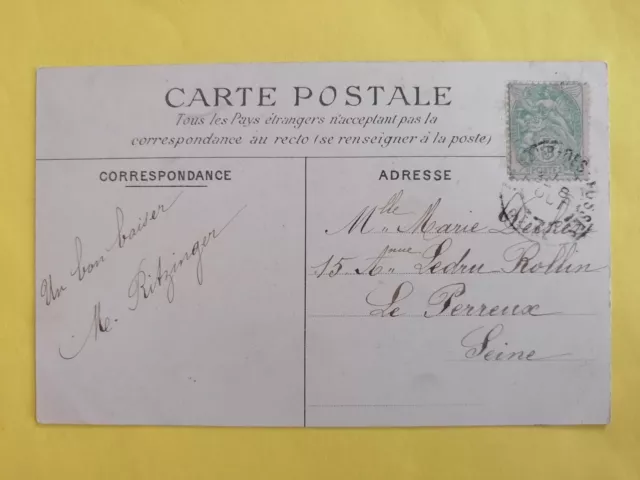 CARTE POSTALE
Tous les Pays étrangers n'acceptent pas la
correspondance au recto (se renseigner à la poste)
CORRESPONDANCE
ADRESSE
Un bon baiser
Me. Ritzinger
Mlle Marie
15 Anue Ledru Rollin
Le Perreux
Seine